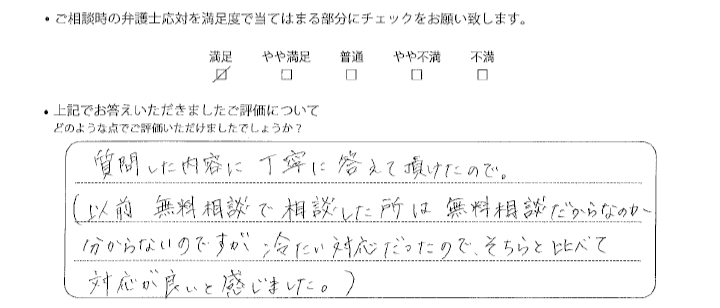 ・ご相談時の弁護士応対を満足度で当てはまる部分にチェックをお願い致します。
満足 やや満足 普通 やや不満 不満
☑ □ □ □ □
・上記でお答えいただきましたご評価について
どのような点でご評価いただけましたでしょうか？
質問した内容に丁寧に答えて頂けたので。
(以前 無料相談で相談した所は無料相談だからなのか
分からないのですが 冷たい対応だったので、そちらと比べて
対応が良いと感じました。)